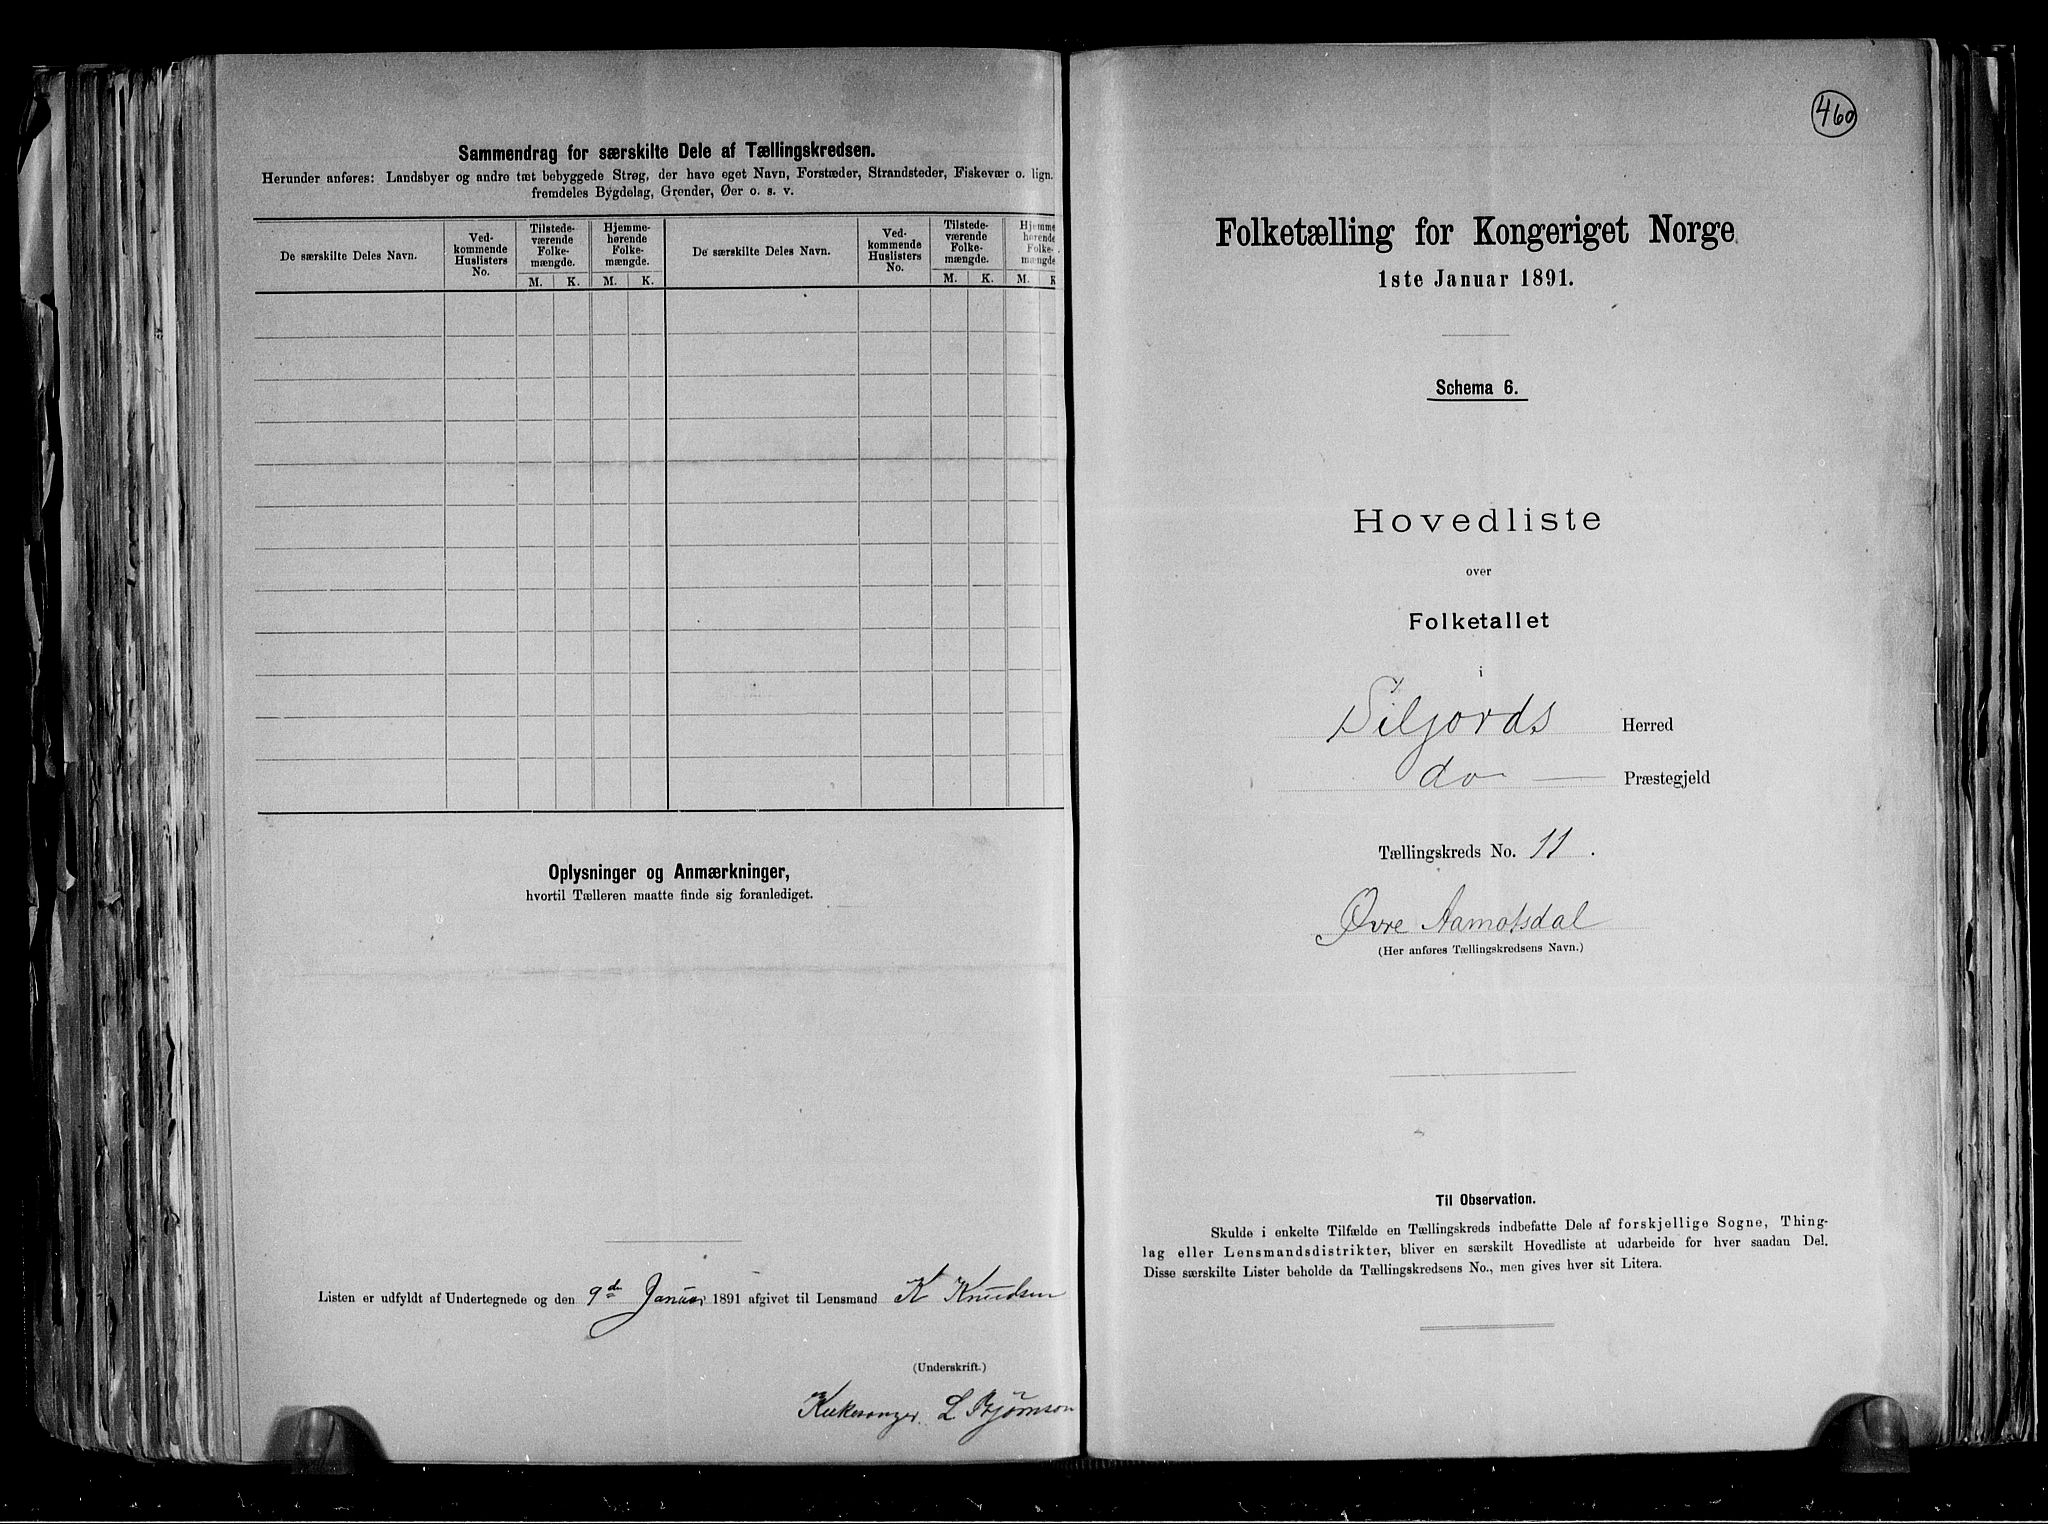 Sammendrag for særskilte Dele af Tællingskredsen.
Herunder anføres: Landsbyer og andre tæt bebyggede Strøg, der have eget Navn, Forstæder, Strandsteder, Fiskevær o. lign.
fremdeles Bygdelag, Grender, Øer o. s. v.
De særskilte Deles Navn.
Ved-
kommende
Huslisters
No.
Tilstede-
værende
Folke-
mængde.
Hjemme-
hørende
Folke-
mængde.
De særskilte Deles Navn.
Ved-
kommende
Huslisters
No.
Tilstede-
værende
Folke-
mængde.
Hjemme
hørende
Folke-
mængde
M. K. M. K. M. K. M. K
Oplysninger og Anmærkninger,
hvortil Tælleren maatte finde sig foranlediget.
Listen er udfyldt af Undertegnede og den 9de Januar 1891 afgivet til Lensmand K Knudsen
(Underskrift.)
Kirkesanger L Bjørnson
460
Folketælling for Kongeriget Norge
1ste Januar 1891.
Schema 6.
Hovedliste
over
Folketallet
i
Siljords Herred
do — Præstegjeld
Tællingskreds No. 11.
Øvre Aamotsdal
(Her anføres Tællingskredsens Navn.)
Til Observation.
Skulde i enkelte Tilfælde en Tællingskreds indbefatte Dele af forskjellige Sogne, Thing-
lag eller Lensmandsdistrikter, bliver en særskilt Hovedliste at udarbeide for hver saadan Del.
Disse særskilte Lister beholde da Tællingskredsens No., men gives hver sit Litera.